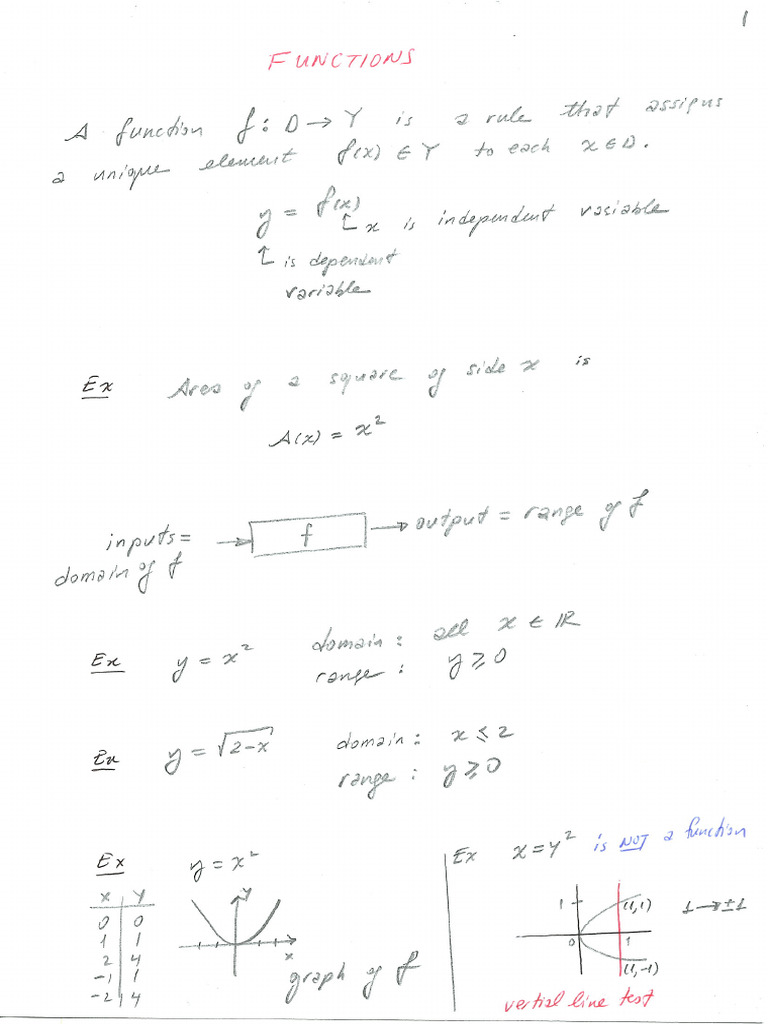 1
FUNCTIONS
A function f: D → Y is a rule that assigns
a unique element f(x) ∈ Y to each x ∈ D.
y = f(x)
x is independent variable
is dependent
variable
Ex Area of a square of side x is
A(x) = x²
inputs = → f → output = range of f
domain of f
Ex y = x² domain: all x ∈ ℝ
range: y ≥ 0
Ex y = √(2-x) domain: x ≤ 2
range: y ≥ 0
Ex y = x²
x y
0 0
1 1
2 4
-1 1
-2 4
y
x
graph of f
Ex x = y² is NOT a function
1 (1,1) 1 → ±1
0 1
(1,-1)
vertial line test